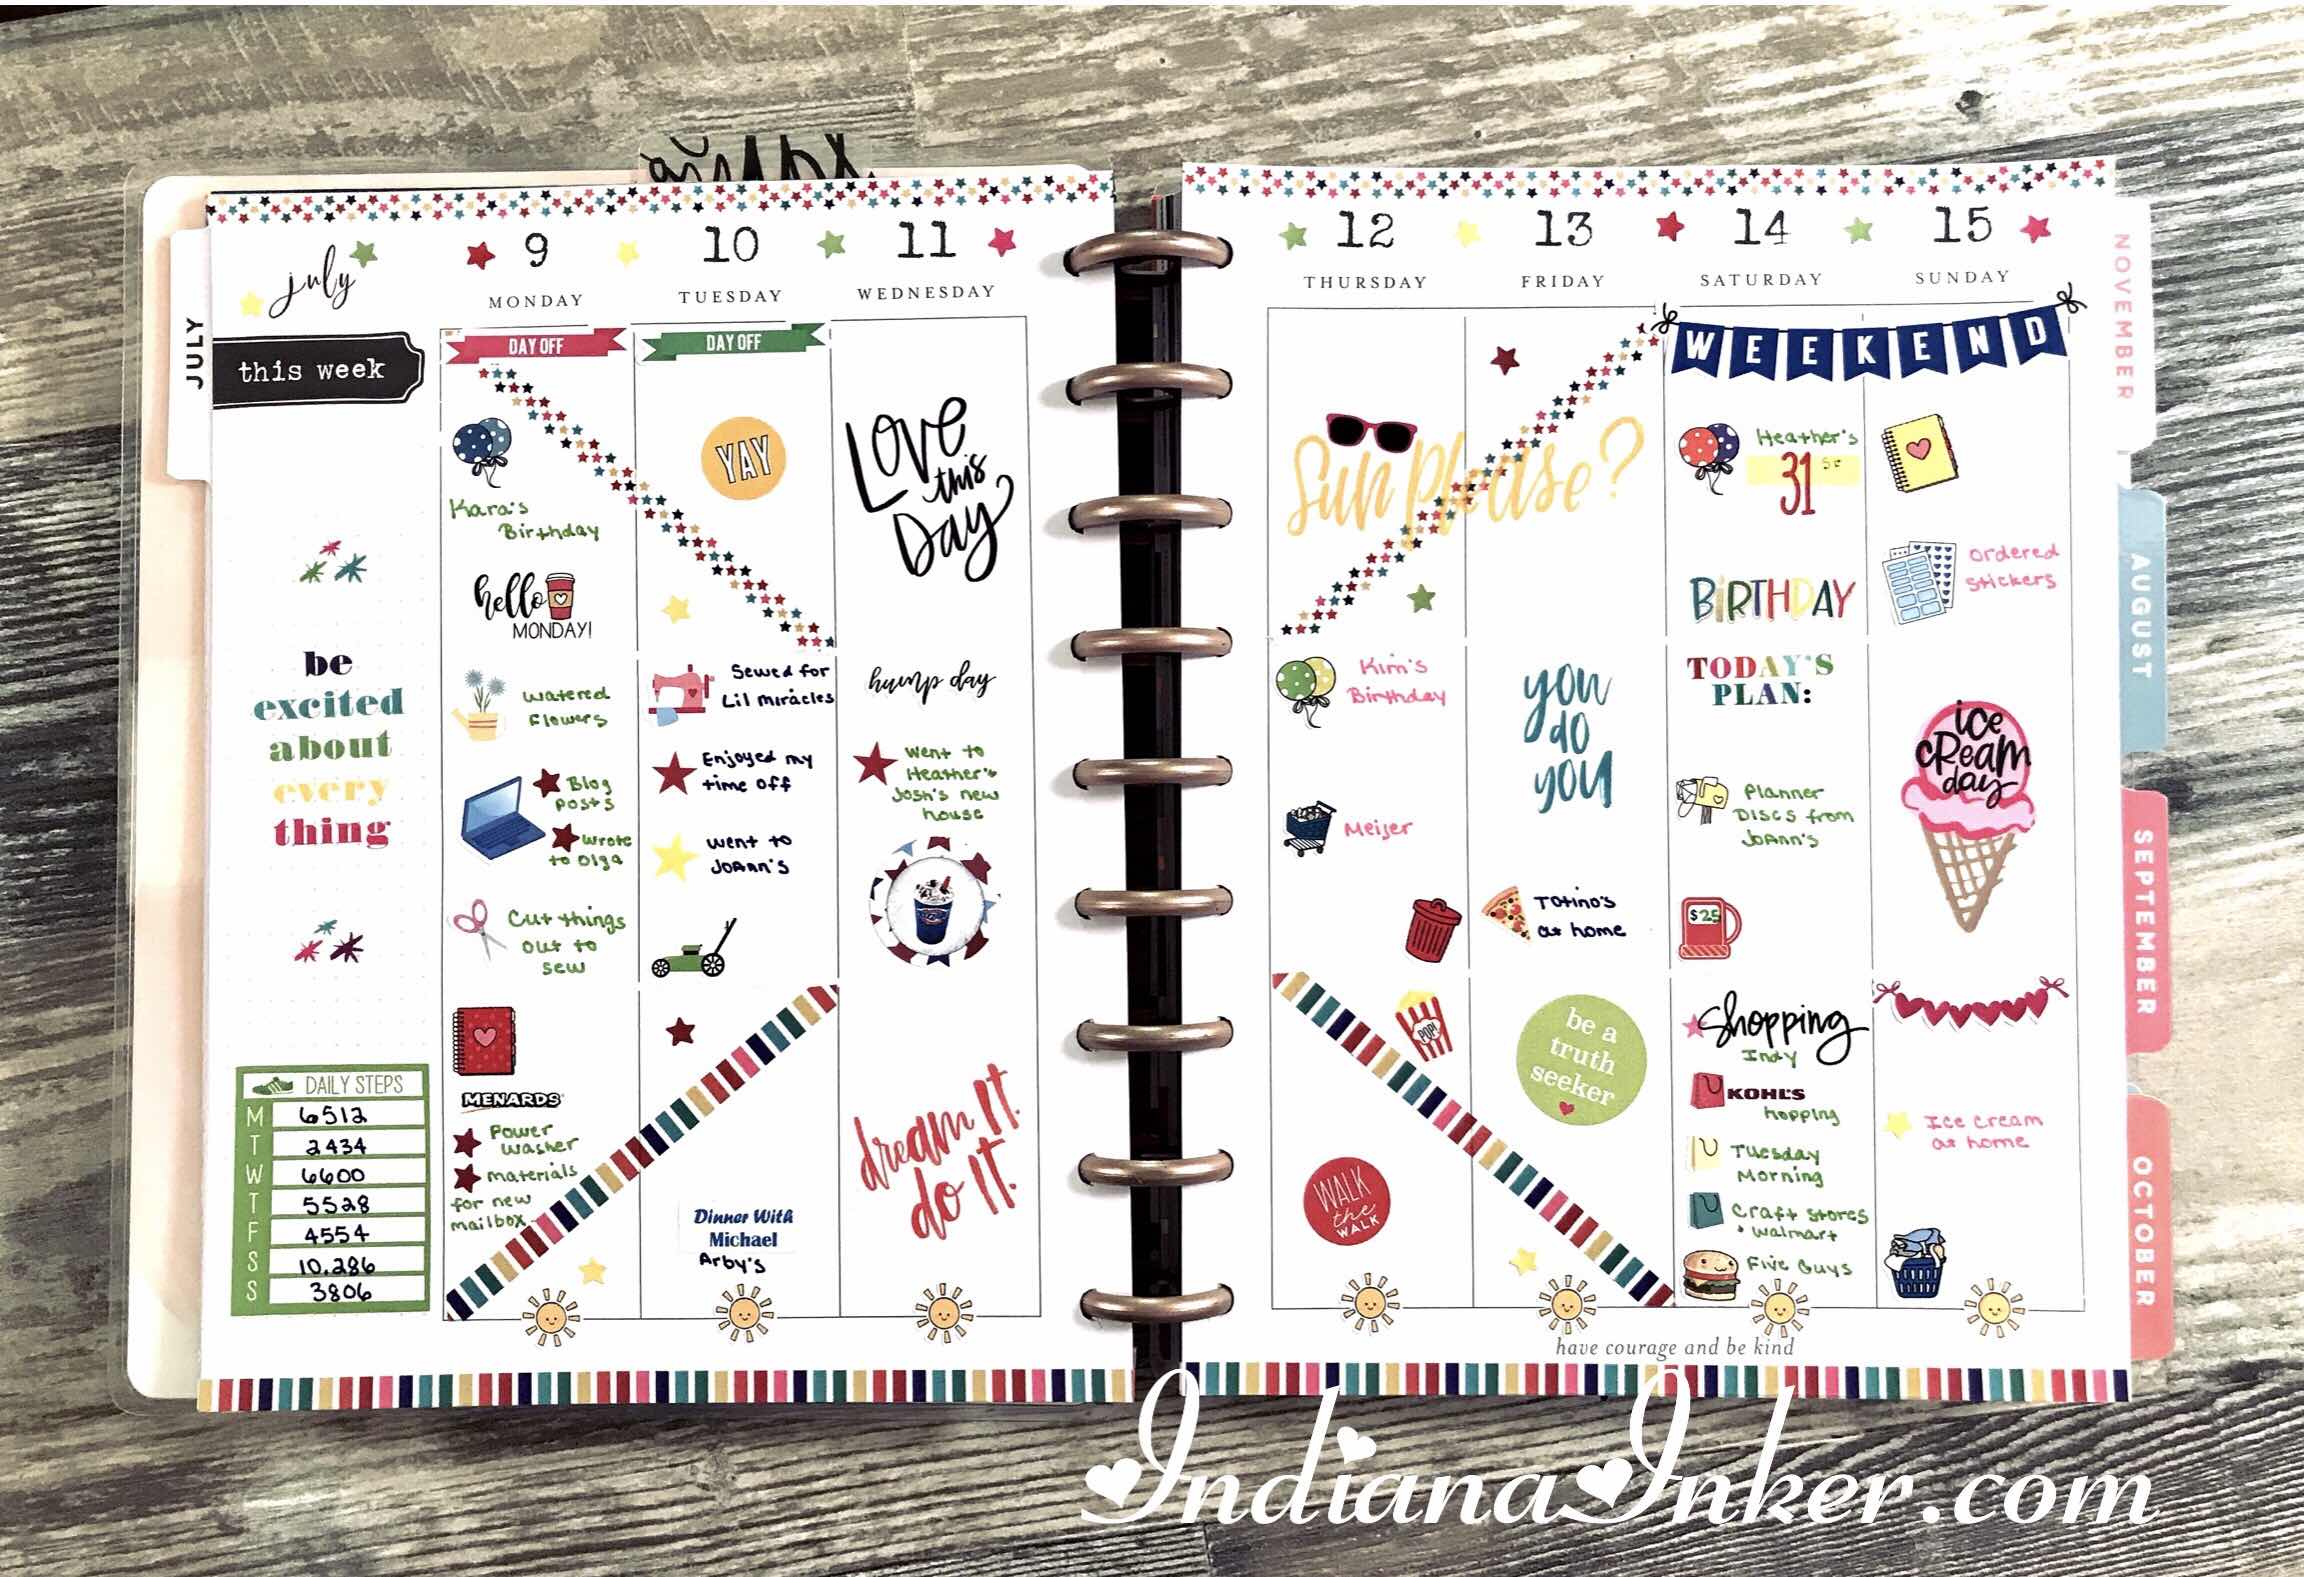 july
JULY
this week
be
excited
about
every
thing
DAILY STEPS
M 6512
T 2434
W 6600
T 5528
F 4554
S 10,286
S 3806
9
MONDAY
DAY OFF
Kara's
Birthday
hello
MONDAY!
watered
flowers
Blog
posts
wrote
to Olga
Cut things
out to
sew
MENARDS
Power
washer
materials
for new
mailbox
10
TUESDAY
DAY OFF
YAY
Sewed for
Lil miracles
Enjoyed my
time off
went to
JoAnn's
Dinner With
Michael
Arby's
11
WEDNESDAY
LOVE
this
Day
hump day
went to
Heather &
Josh's new
house
dream IT.
do IT.
12
THURSDAY
Sun Please?
Kim's
Birthday
Meijer
POP!
WALK
the
WALK
13
FRIDAY
you
do
you
Totino's
at home
be a
truth
seeker
14
SATURDAY
WEEKEND
Heather's
31st
BIRTHDAY
TODAY'S
PLAN:
Planner
Discs from
JoAnn's
$25
Shopping
Indy
KOHL'S
hopping
Tuesday
Morning
Craft stores
+ Walmart
Five Guys
15
SUNDAY
ordered
stickers
ice
cream
day
Ice cream
at home
have courage and be kind
NOVEMBER
AUGUST
SEPTEMBER
OCTOBER
IndianaInker.com